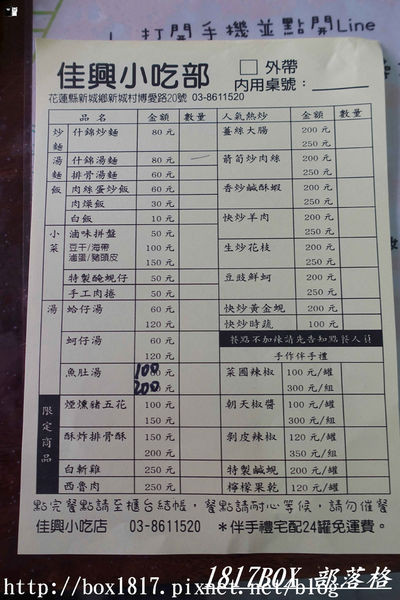 打開手機並點開Line
佳興小吃部
外帶
內用桌號：
花蓮縣新城鄉新城村博愛路20號 03-8611520
品名 金額 數量 人氣熱炒 金額 數量
炒麵 什錦炒麵 80元 薑絲大腸 200元
250元
湯麵 什錦湯麵 80元 箭筍炒肉絲 200元
排骨湯麵 60元 250元
飯 肉絲蛋炒飯 60元 香炒鹹酥蝦 200元
肉燥飯 30元 250元
白飯 10元 快炒羊肉 200元
小菜 滷味拼盤 50元 250元
豆干/海帶 100元 生炒花枝 200元
滷蛋/豬頭皮 150元 250元
特製醃蜆仔 50元 豆豉鮮蚵 200元
手工肉捲 50元 250元
湯 蛤仔湯 60元 快炒黃金蜆 200元
120元 快炒時蔬 100元
蚵仔湯 60元 餐點不加辣請先告知點餐人員
120元 手作伴手禮
魚肚湯 100元 菜圃辣椒 100元/罐
200元 300元/組
限定商品 煙燻豬五花 100元 朝天椒醬 100元/罐
150元 300元/組
酥炸排骨酥 150元 剝皮辣椒 120元/罐
200元 350元/組
白斬雞 250元 特製鹹蜆 200元/罐
西魯肉 250元 檸檬果乾 120元/罐
點完餐點請至櫃台結帳，餐點請耐心等候，請勿催餐
佳興小吃店 03-8611520 *伴手禮宅配24罐免運費。
1817BOX 部落格
http://box1817.pixnet.net/blog